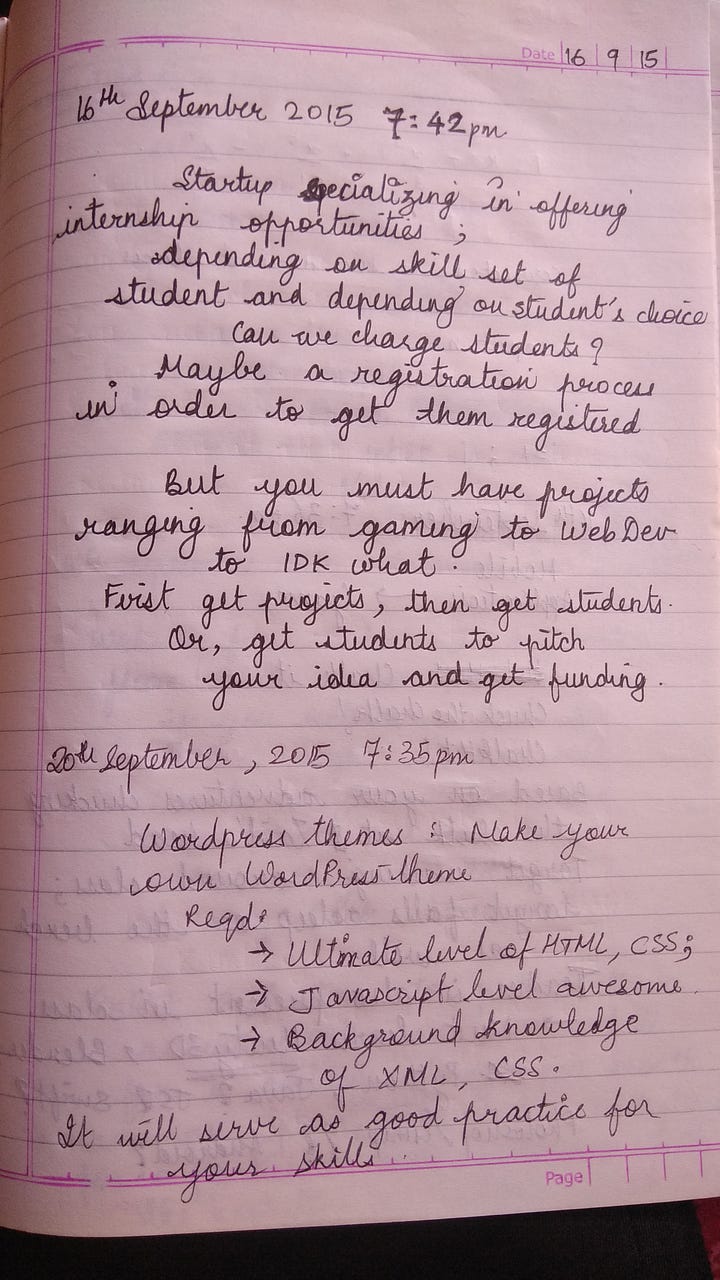 Date 16 9 15
16th September 2015 7:42pm
Startup specializing in offering
internship opportunities ;
depending on skill set of
student and depending on student's choice
Can we charge students ?
Maybe a registration process
in order to get them registered
But you must have projects
ranging from gaming to Web Dev
to IDK what.
First get projects, then get students.
Or, get students to pitch
your idea and get funding.
20th September, 2015 7:35pm
Wordpress themes : Make your
own WordPress theme
Reqd:
→ Ultimate level of HTML, CSS;
→ Javascript level awesome.
→ Background knowledge
of XML, CSS.
It will serve as good practice for
your skills.
Page